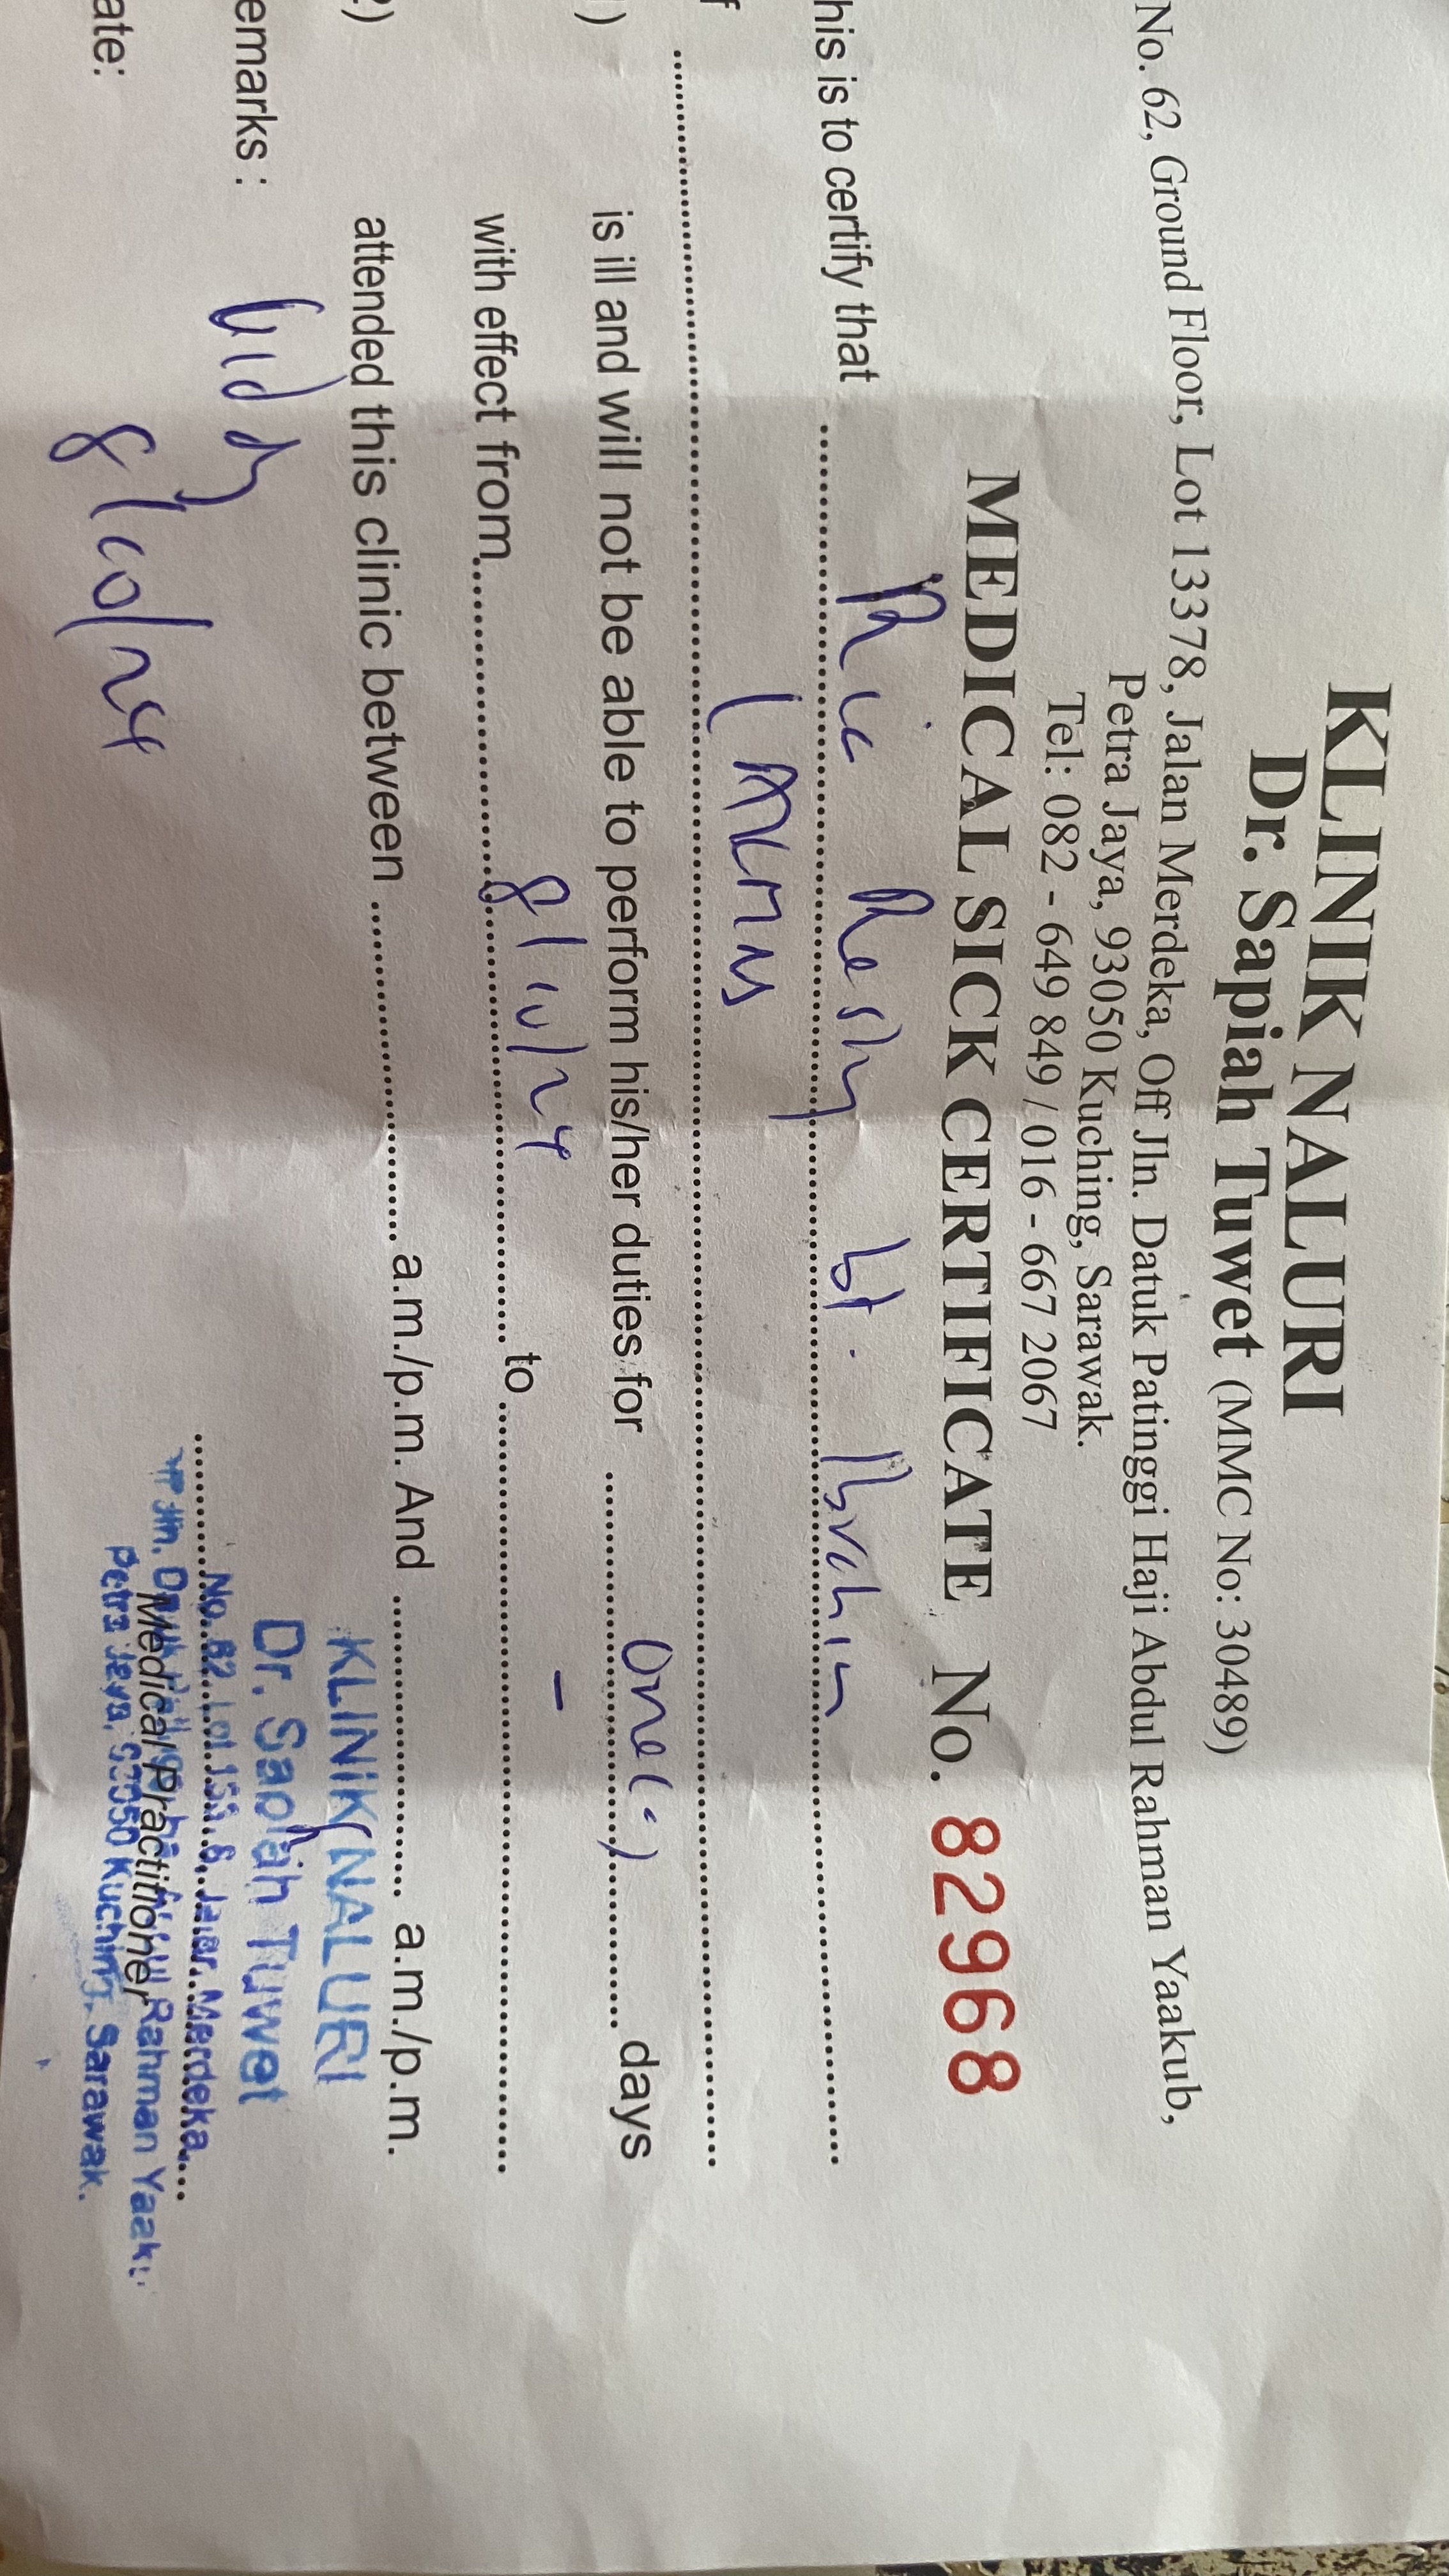 KLINIK NALURI
Dr. Sapiah Tuwet (MMC No: 30489)
No. 62, Ground Floor, Lot 13378, Jalan Merdeka, Off Jln. Datuk Patinggi Haji Abdul Rahman Yaakub,
Petra Jaya, 93050 Kuching, Sarawak.
Tel: 082 - 649 849 / 016 - 667 2067
MEDICAL SICK CERTIFICATE No. 82968
his is to certify that ........ Ric Resly bt. Ibrahim ........
f ........
is ill and will not be able to perform his/her duties for ........ One ( ) ........ days
with effect from ........ 8/10/24 ........ to ........ - ........
attended this clinic between ........ a.m./p.m. And ........ a.m./p.m.
emarks :
ate: 8/10/24
KLINIK NALURI
Dr. Sapiah Tuwet
Jalan Merdeka
Rahman Yaak
Medical Practitioner
Petra Jaya, 93050 Kuching, Sarawak.